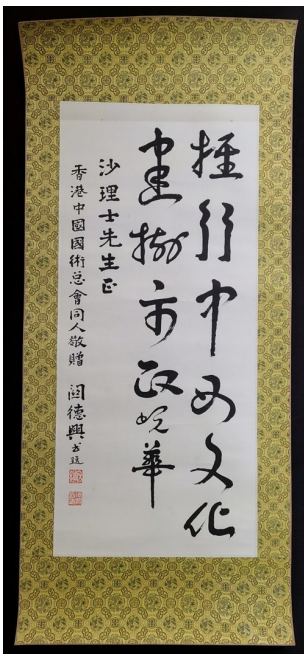 推行中西文化
建樹市政華
沙理士先生正
香港中國國術总會同人敬贈 関德興书